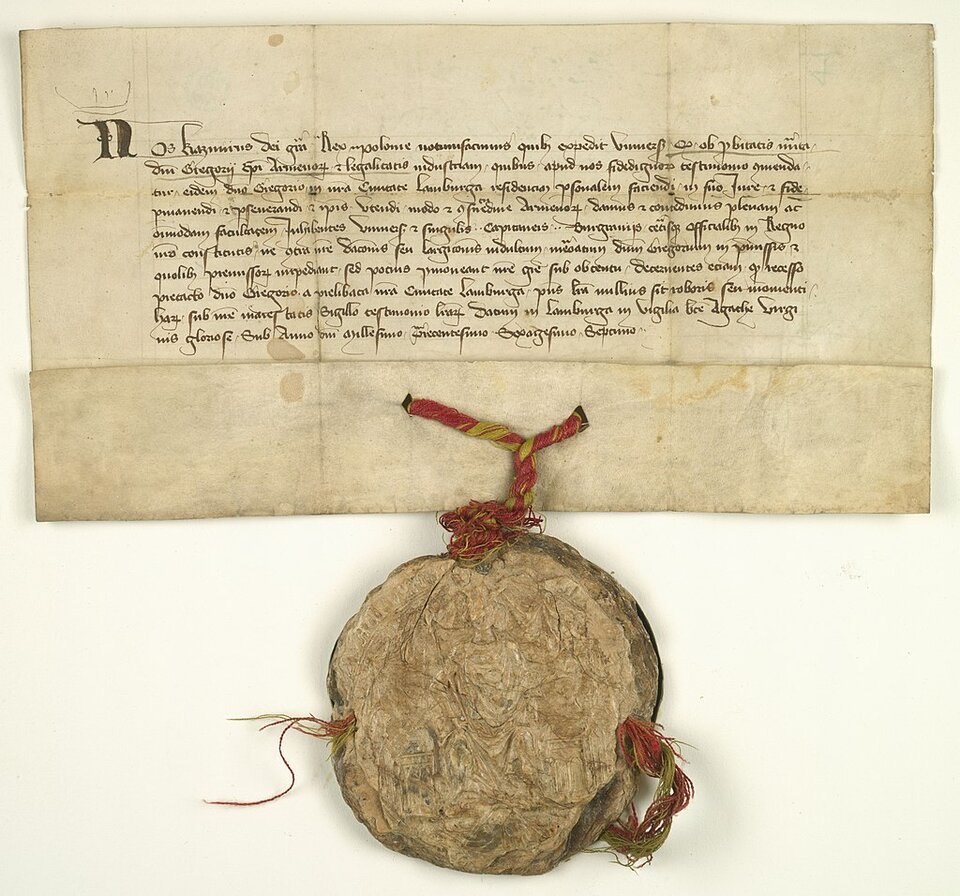 Nos Kazimirus dei gra Rex Polonie notumfacimus quib expedit Univers Q ob pbitatis mita
dni Gregorii Epi Armenor & legalitatis industriam quibus apud nos fidedignor testimonio omenda
tur eidem dno Gregorio in nra Civitate Lamburga residenciam psonalem faciendi in suo Jure & fide
pmanendi & pseverandi & ipis utendi modo & gsuetudine Armenor damus & concedimus plenam ac
omnimodam facultatem Inhibentes Univers & singulis Capitaneis Burgraviis ceterisq Officialib in Regno
nro constitutis ne contra nre dacionis seu largicionis indultum memoratum dnm Gregorium in pmissis &
quolib premissor impediant sed pocius pmoveant nre gre sub obtentu decernentes etiam q recesso
pretacto dno Gregorio a prelibata nra Civitate Lamburga pns lra nullius sit roboris seu momenti
har sub nre maiestatis Sigillo testimonio lrar Datum in Lamburga in Vigilia bte Agathe Virgi
nis gloriose Sub Anno dni Millesimo Trecentesimo Sexagesimo Septimo